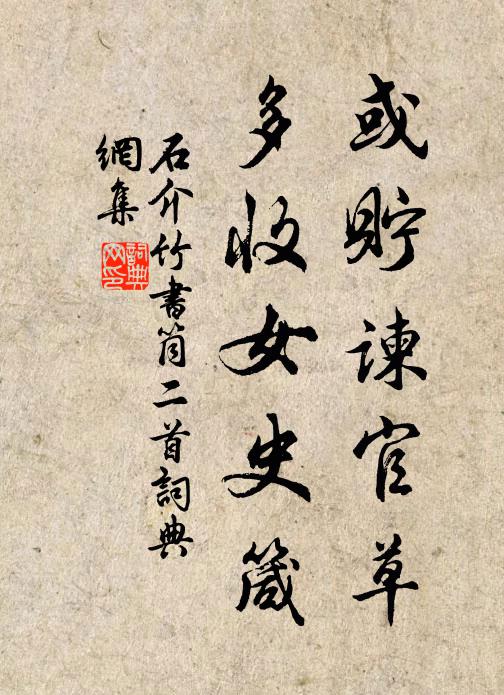 或貯諫官草
多收女史箴
石介竹書筒二首詞典
網集
詞典
网印